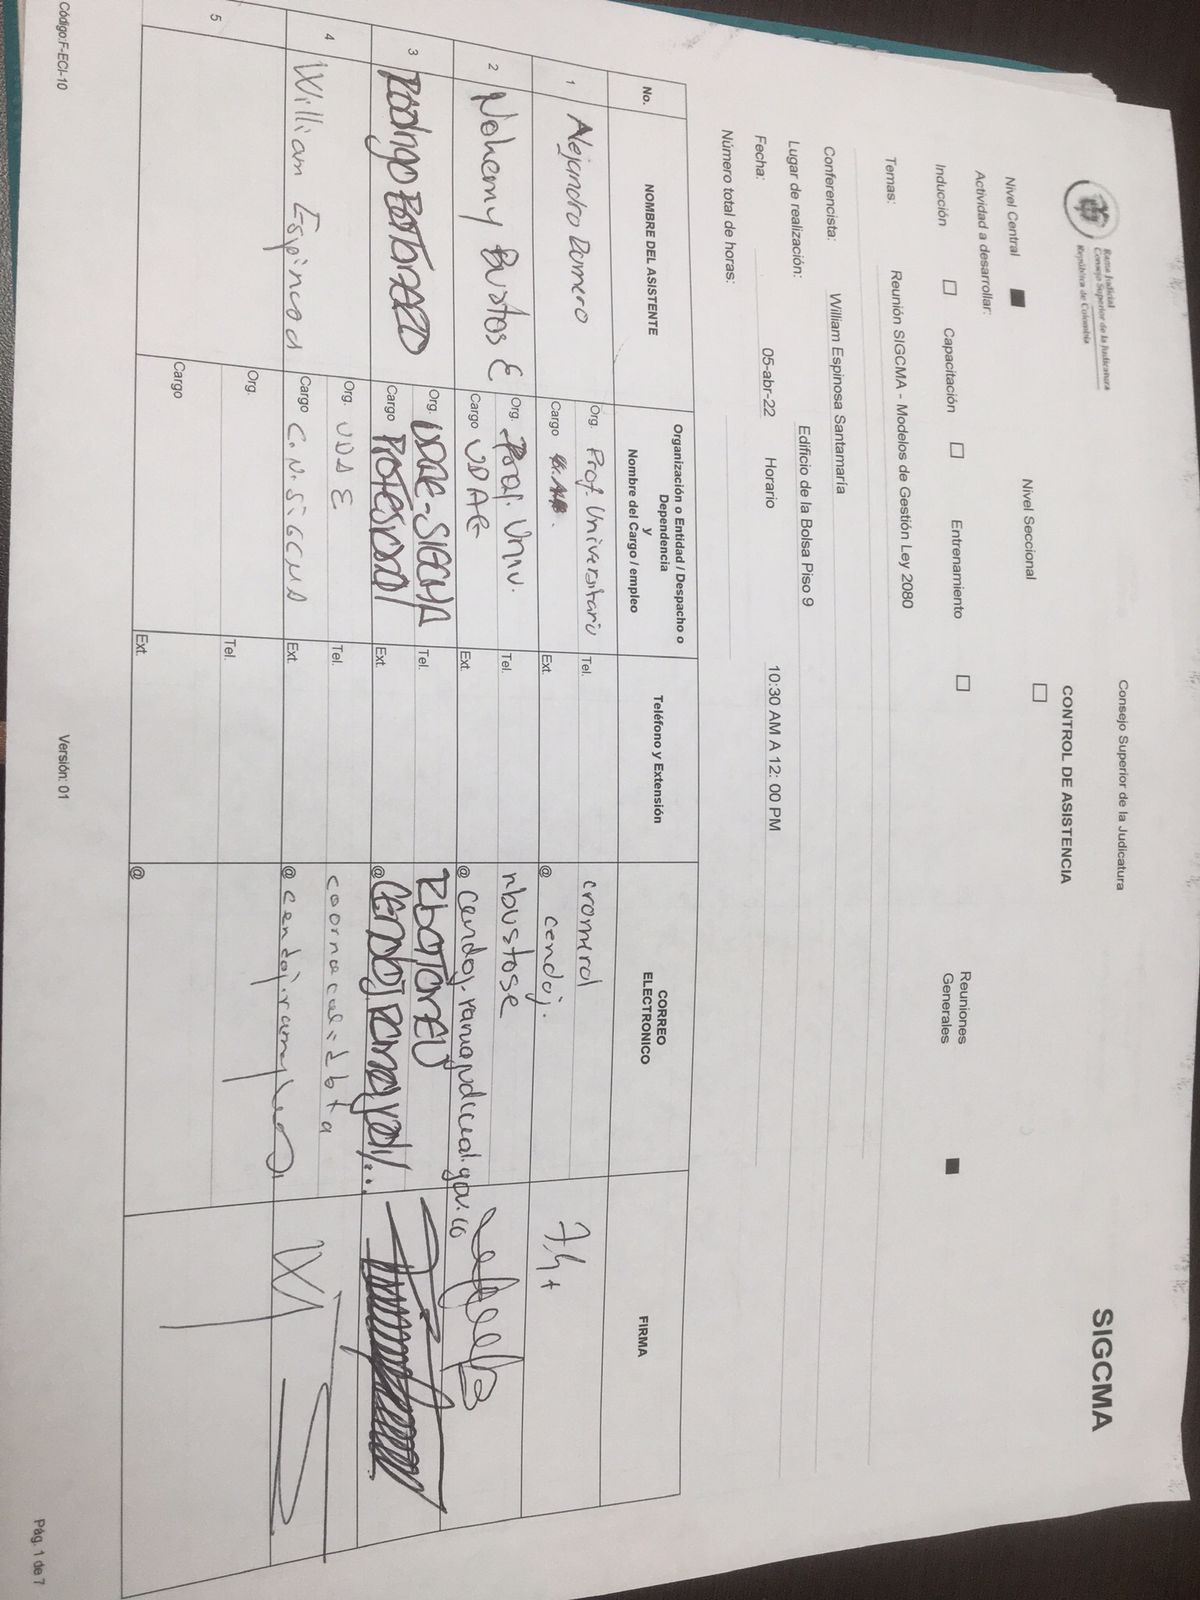 Rama Judicial
Consejo Superior de la Judicatura
República de Colombia
Consejo Superior de la Judicatura
SIGCMA
CONTROL DE ASISTENCIA
Nivel Central
Nivel Seccional
Actividad a desarrollar:
Inducción
Capacitación
Entrenamiento
Reuniones Generales
Temas: Reunión SIGCMA - Modelos de Gestión Ley 2080
Conferencista: William Espinosa Santamaría
Lugar de realización: Edificio de la Bolsa Piso 9
Fecha: 05-abr-22 Horario 10:30 AM A 12: 00 PM
Número total de horas:
No.
NOMBRE DEL ASISTENTE
Organización o Entidad / Despacho o
Dependencia
y
Nombre del Cargo / empleo
Teléfono y Extensión
CORREO
ELECTRONICO
FIRMA
1 Alejandro Romero
Org. Prof. Universitario Tel.
Cargo Ext. @ cendoj.
2 Nohemy Bustos E
Org. Prof. Univ. Tel. nbustose
Cargo UDAE Ext. @ cendoj.ramajudicial.gov.co
3 Rodrigo
Org. UDAE-SIGCMA Tel.
Cargo Profesional Ext. @
4 William Espinosa
Org. UDAE Tel.
Cargo C.N.SIGCMA Ext. @
5
Org. Tel.
Cargo Ext. @
Código:F-ECI-10
Versión: 01
Pág. 1 de 7